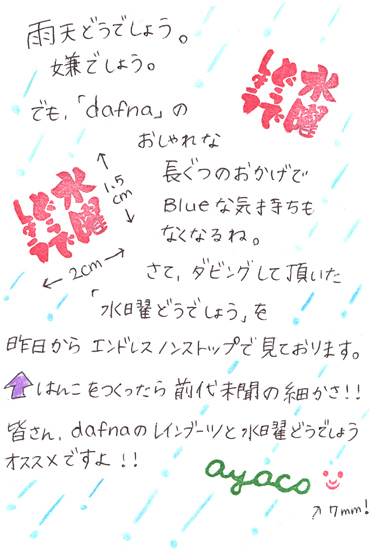 雨天どうでしょう。
嫌でしょう。
水曜
どうで
しょう
でも、「dafna」の
おしゃれな
長ぐつのおかげで
Blueな気持ちも
なくなるね。
水曜
どうで
しょう
1.5
cm
2cm
さて、ダビングして頂いた
「水曜どうでしょう」を
昨日から エンドレスノンストップで見ております。
はんこをつくったら 前代未聞の細かさ!!
皆さん、dafnaのレインブーツと水曜どうでしょう
オススメですよ!!
ayaco
↗7mm!